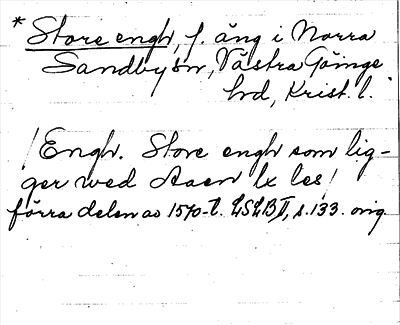 * Store engh, f. äng i Norra
Sandby sn, Västra Göinge
hd, Krist. l.
/Engh. Store engh som lig-
ger wed Aaen lx les/
förra delen av 1570-t. LSLB II, s. 133. orig.